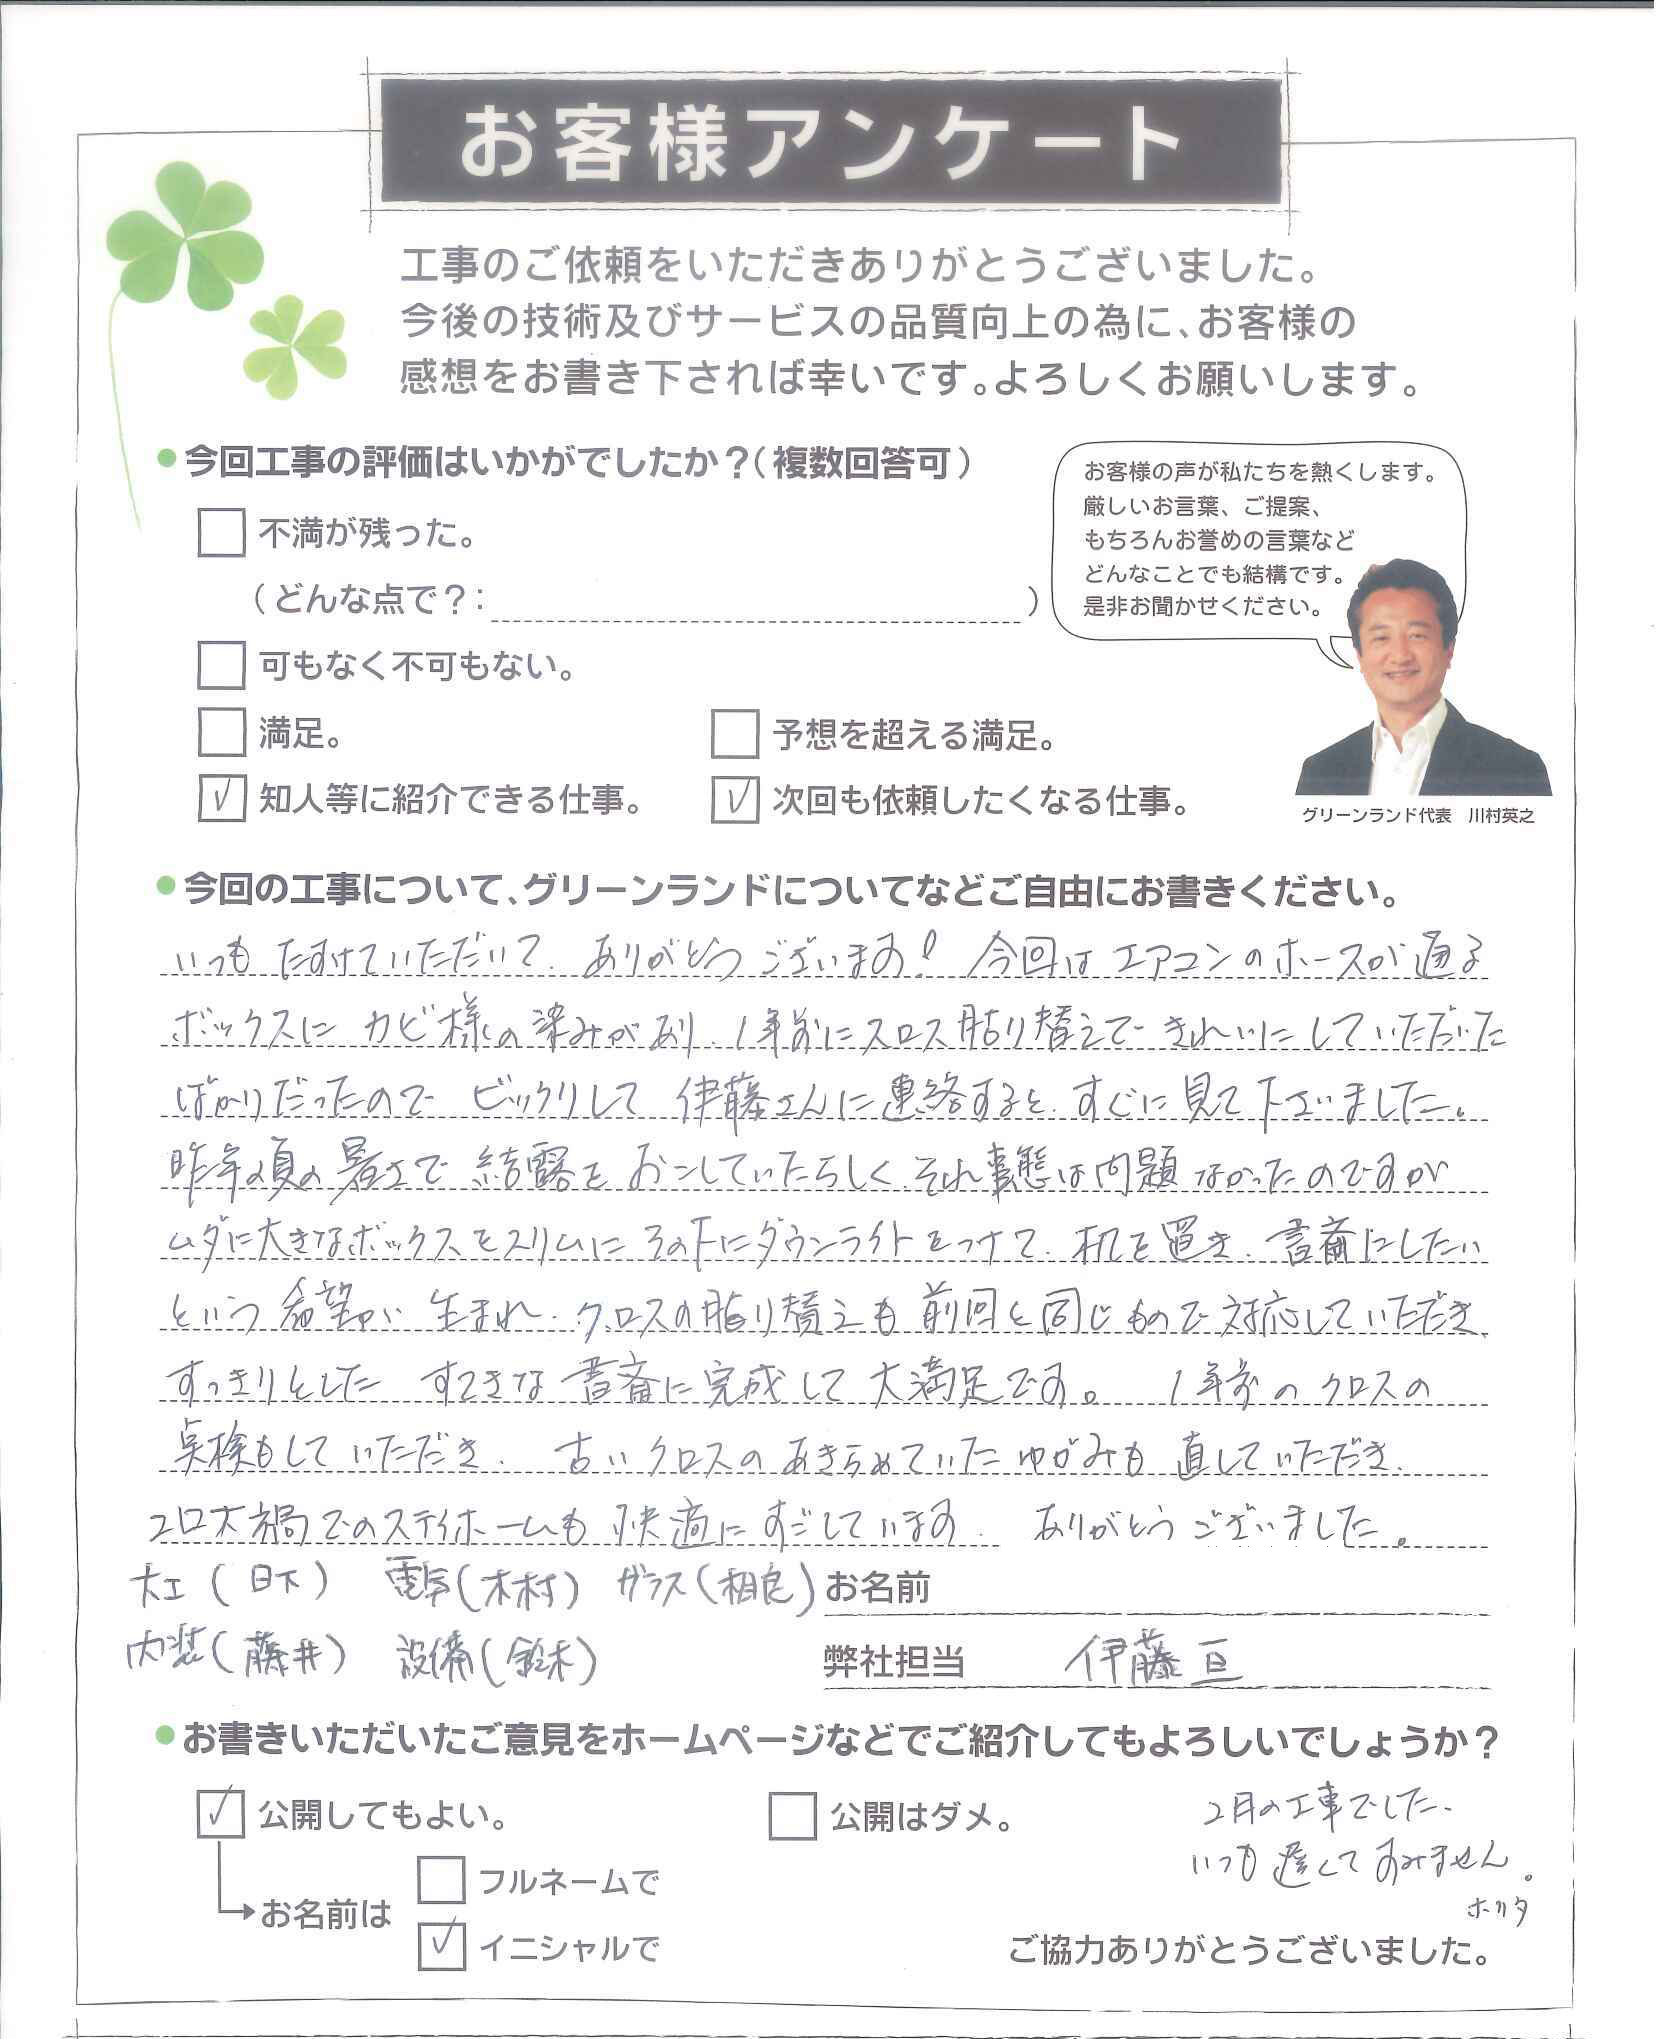 お客様アンケート
工事のご依頼をいただきありがとうございました。
今後の技術及びサービスの品質向上の為に、お客様の
感想をお書き下されば幸いです。よろしくお願いします。
今回工事の評価はいかがでしたか？（複数回答可）
お客様の声が私たちを熱くします。
厳しいお言葉、ご提案、
もちろんお誉めの言葉など
どんなことでも結構です。
是非お聞かせください。
不満が残った。
（どんな点で？：　）
可もなく不可もない。
満足。　予想を超える満足。
✓ 知人等に紹介できる仕事。　✓ 次回も依頼したくなる仕事。
グリーンランド代表　川村英之
今回の工事について、グリーンランドについてなどご自由にお書きください。
いつも たすけていただいて、ありがとうございます！ 今回は エアコンのホースが通る
ボックスに カビ様の染みがあり、1年前にクロス貼り替えて きれいにしていただいた
ばかりだったので ビックリして 伊藤さんに連絡すると、すぐに見て下さいました。
昨年の夏の暑さで 結露を おこしていたらしく、それ事態は問題なかったのですが
ムダに大きなボックスをスリムに その下にダウンライトをつけて、机を置き、書斎にしたい
という 希望が 生まれ、クロスの貼り替えも 前回と同じもので 対応していただき、
すっきりとした すてきな 書斎に完成して 大満足です。 1年前のクロスの
点検もしていただき、 古いクロスのあきらめていたゆがみも 直していただき、
コロナ禍でのステイホームも 快適にすごしています。 ありがとうございました。
大工（日下）　電気（木村）　ガラス（相良）　お名前
内装（藤井）　設備（鈴木）　弊社担当　伊藤 亘
お書きいただいたご意見をホームページなどでご紹介してもよろしいでしょうか？
✓ 公開してもよい。　公開はダメ。
2月の工事でした。
いつも 遅くて すみません。
ホリタ
お名前は
フルネームで
✓ イニシャルで
ご協力ありがとうございました。